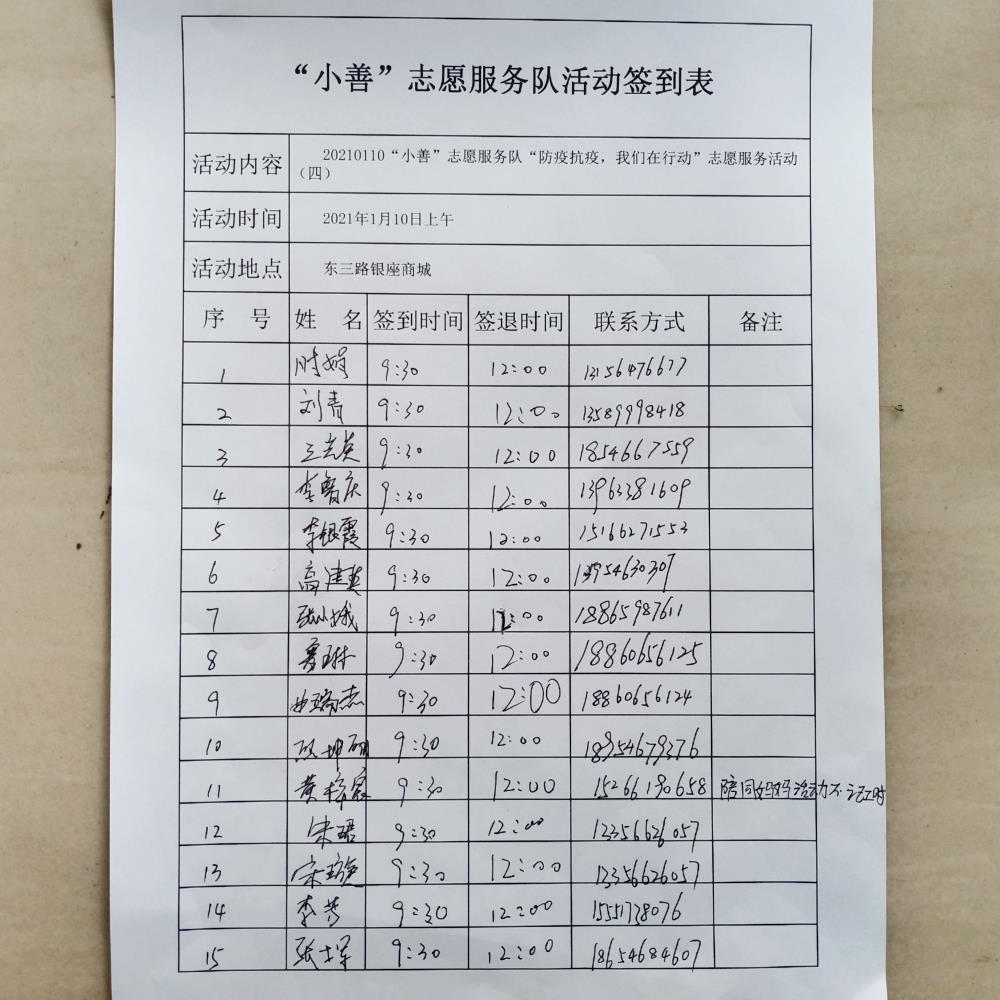 “小善”志愿服务队活动签到表
活动内容 20210110“小善”志愿服务队“防疫抗疫，我们在行动”志愿服务活动
（四）
活动时间 2021年1月10日上午
活动地点 东三路银座商城
序 号 姓 名 签到时间 签退时间 联系方式 备注
1 时娟 9:30 12:00 13156476677
2 刘青 9:30 12:00 13589998418
3 9:30 12:00 18546667559
4 李鲁庆 9:30 12:00 13963381609
5 李银霞 9:30 12:00 15166271553
6 高建英 9:30 12:00 13954630307
7 9:30 12:00 18865987611
8 夏琳 9:30 12:00 18860656125
9 曲瑞杰 9:30 12:00 18860656124
10 9:30 12:00 18954679376
11 黄梓宸 9:30 12:00 15266190658 陪同妈妈活动不记工时
12 宋珺 9:30 12:00 13356626057
13 宋璇 9:30 12:00 13356626057
14 李芳 9:30 12:00
15 张士军 9:30 12:00 18654684607